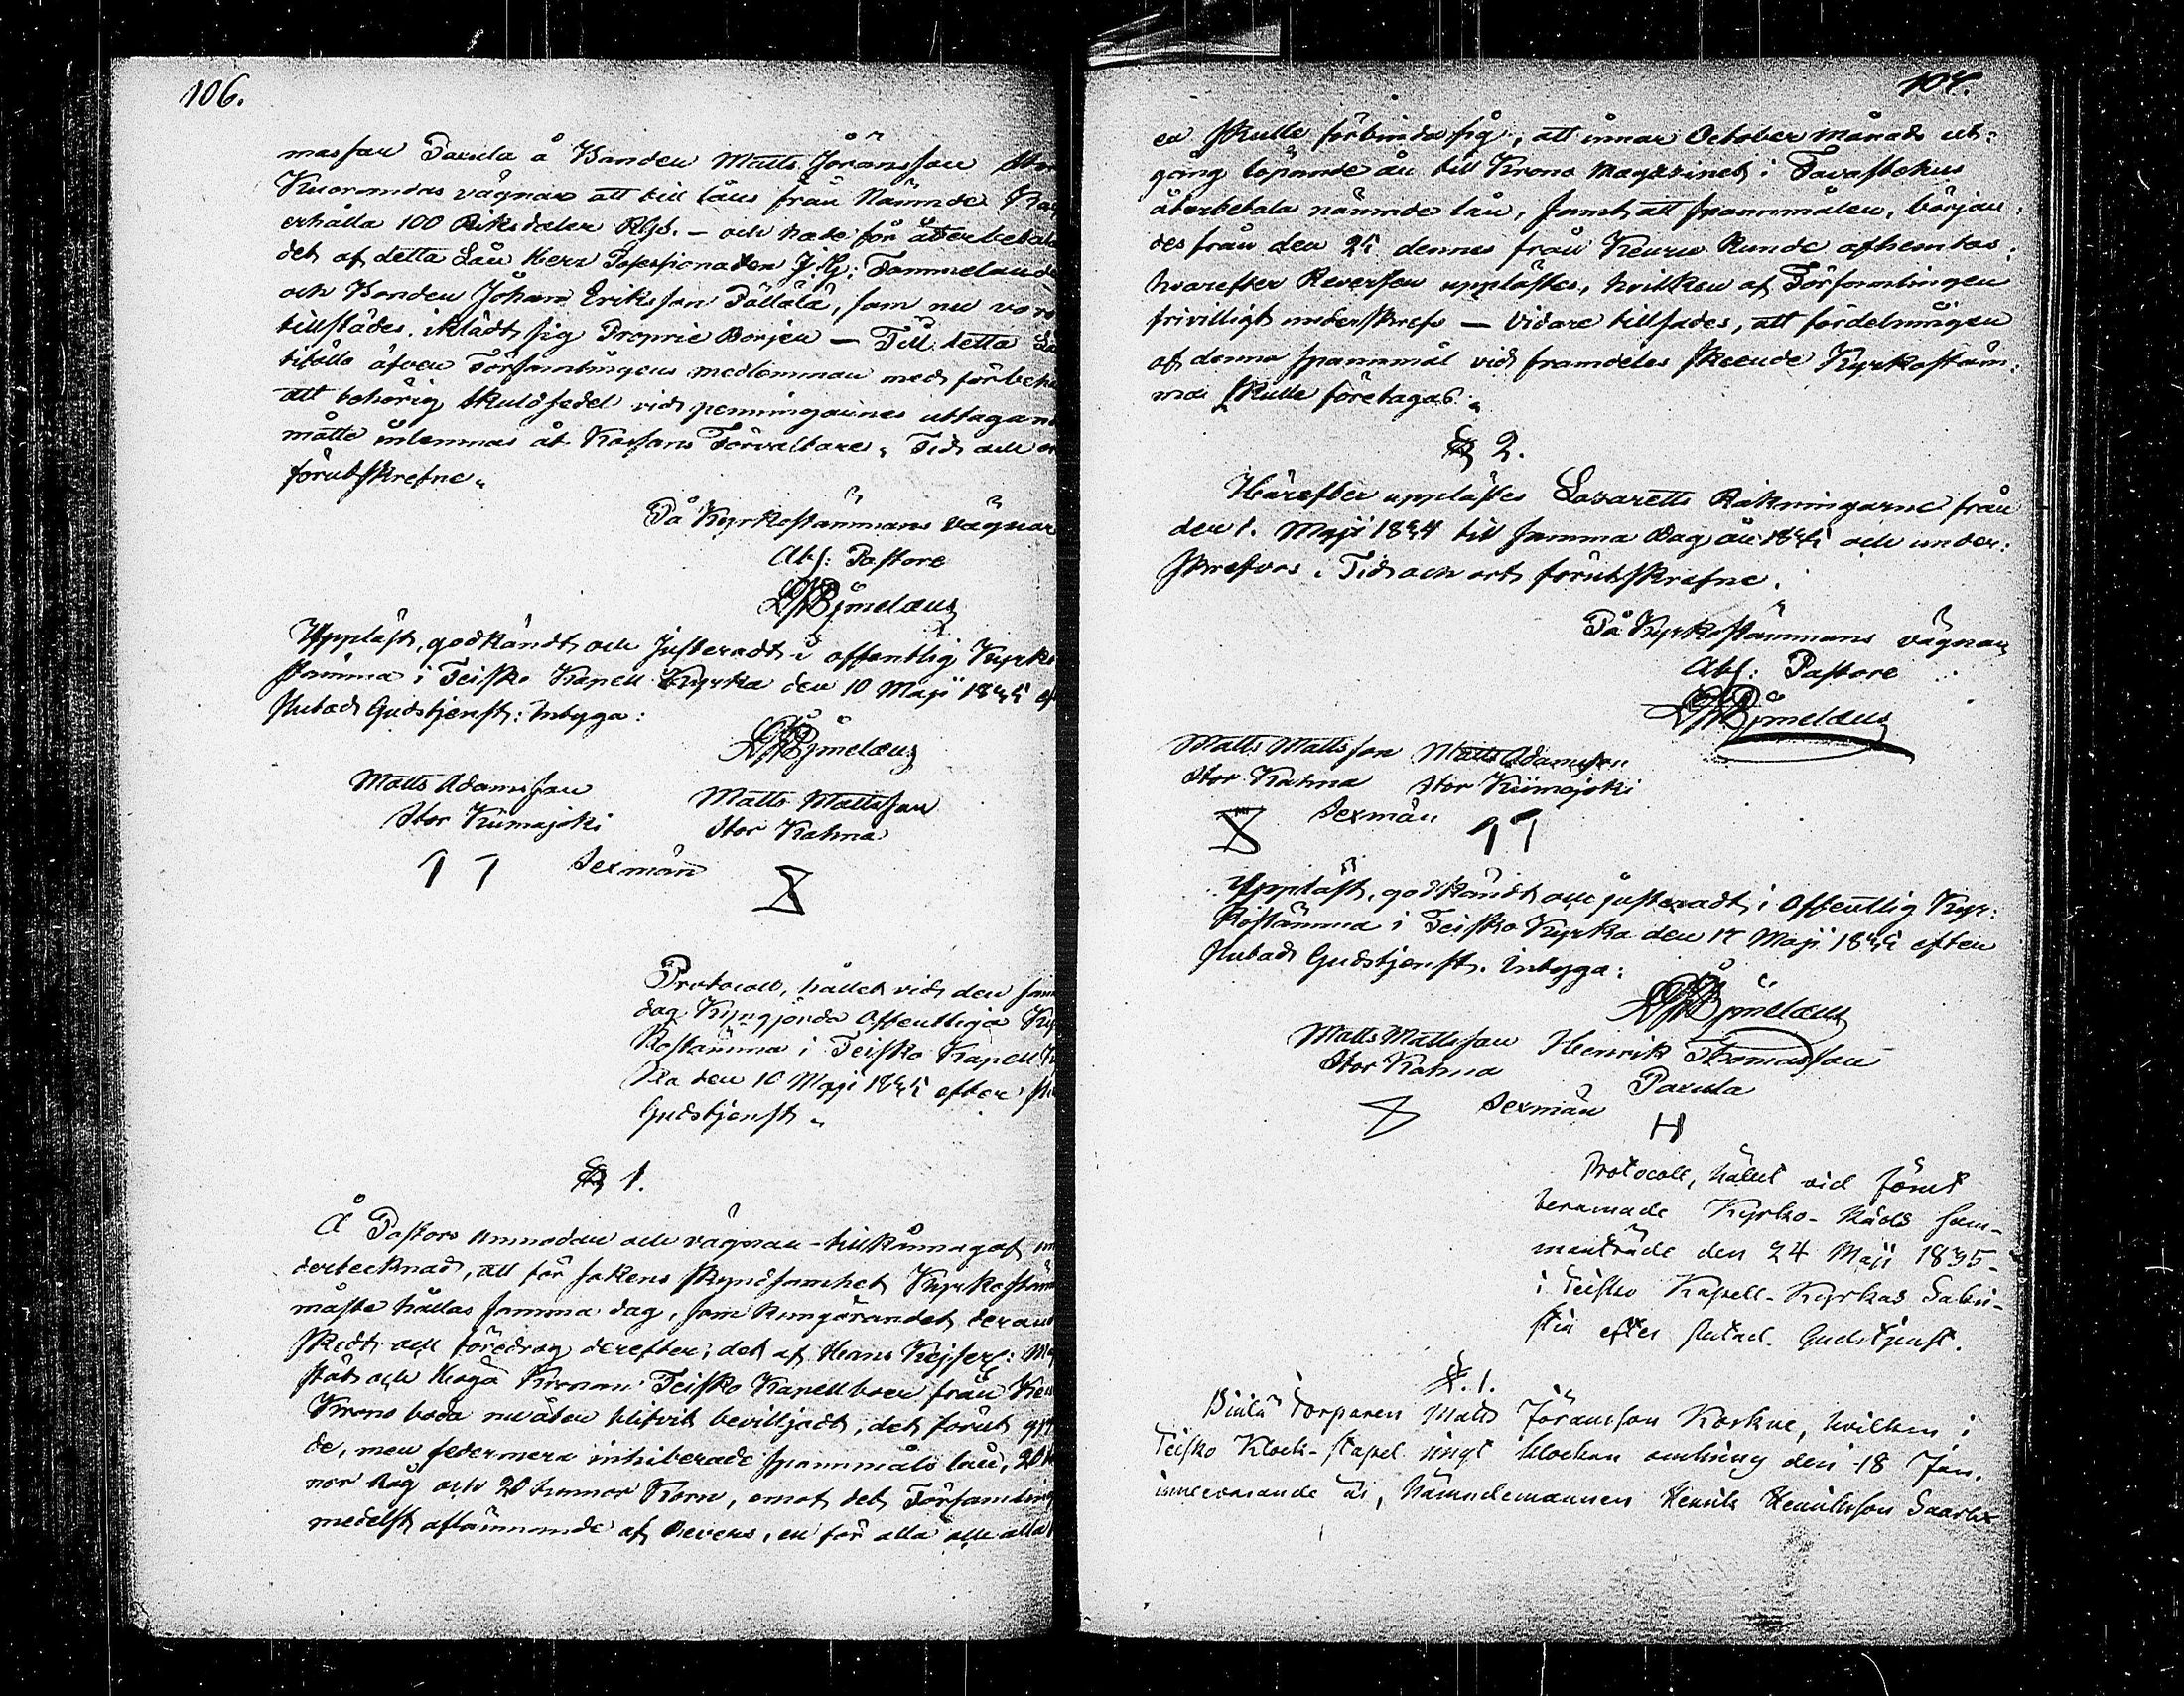 106.
massau Pavula å Bonden Matts Jöranssou Stor
Kuorandas vägnar att till låns från Nämnde Kas
erhålla 100 Riksdaler RGs. — och hade för återbetalan
det af detta Lån Herr Possessionaten J. G: Tammelander
och Bonden Johan Eriksson Pällälä, som nu voro
tillstädes, iklädt sig Proprie Borjen — Till detta Lå
biföllo äfven Församlingens medlemmar med förbehåll
att behörig skuldsedel vid penningarnes uttagan
måtte inlemnas åt Kassans Förvaltare. Tid och or
förutskrefne.
På Kyrkostämmans vägnar
Abs: Pastore
Uppläst, godkändt och Justeradt i offentlig Kyrko
stämma i Teisko Kapell Kyrka den 10 Maji 1835 ef
slutad Gudstjenst: Intyga:
Matts Adamsson
Stor Kiimajoki
Matts Mattsson
Stor Kahna
Sexmän
Protocoll, hållet vid den sam
dag Kungjorda Offentliga Kyr
kostämma i Teisko Kapell K
ka den 10 Maji 1835 efter slu
Gudstjenst.
§ 1.
Å Pastors anmodan och vägnar tillkännagaf un
dertecknad, att för sakens skyndsamhet Kyrkostäm
måste hållas samma dag, som kungörandet deraf
skedt och föredrog derefter, det af Hans Kejserl: Maj
stät och Höga Kronan Teisko Kapellboer från Keuru
Krono boda nu åter blifvit beviljadt, det förut gj
de, men sedermera inhiberade spannmåls lån, 20 t
nor Råg och 20 tunnor Korn, emot det Församling
medelst aflämnande af Revers, en för alla och alla
107.
en skulle förbinda sig, att innan October månads ut:
gång löpande år till Krono Magazinet i Tavastehus
återbetala nämnde lån, samt att spannmålen, börjar
des från den 25 dennes från Keuru Runde afhemtas:
hvarefter Reversen upplästes, hvilken af Församlingen
frivilligt underskrefs — Vidare tillsades, att fördelningen
af denna spannmål vid framdeles skeende Kyrkostäm:
ma skulle företagas.
§ 2.
Härefter upplästes Lazaretts Räkningarne från
den 1. Maji 1834 till samma dag år 1835 och under:
skrefvos. Tid och ort förutskrefne.
På Kyrkostämmans vägnar
Abs: Pastore
Matts Mattsson Matts Adamsson
Stor Kahna Stor Kiimajoki
Sexmän
Uppläst, godkändt och justeradt i Offentlig Kyr:
kostämma i Teisko Kyrka den 17 Maji 1835 efter
slutad Gudstjenst. Intyga:
Matts Mattsson Henrik Thomasson
Stor Kahna Pavula
Sexmän
Protocoll, hållet vid förut
beramade Kyrko-Råds sam-
manträde den 24 Maji 1835
i Teisko Kapell-Kyrkas Sakri-
stia efter slutad Gudstjenst.
§. 1.
Torparen Matts Jöransson Korkne, hvilken i
Teisko Klock-stapel ringt klockan omkring den 18 Jan.
innevarande år, Nämndemannen Henrik Henriksson Saarlax